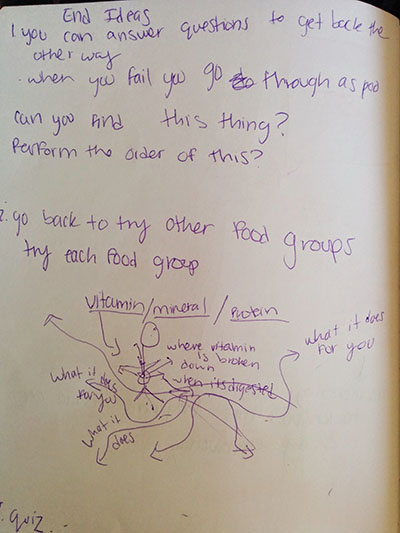 End Ideas
1 you can answer questions to get back the
other way
. when you fail you go through as poo
can you find this thing?
Perform the order of this?
2. go back to try other food groups
try each food group
vitamin/mineral/protein
where vitamin
is broken
down
when its digested
what it does
for you
what it does
for you
what it
does
. quiz